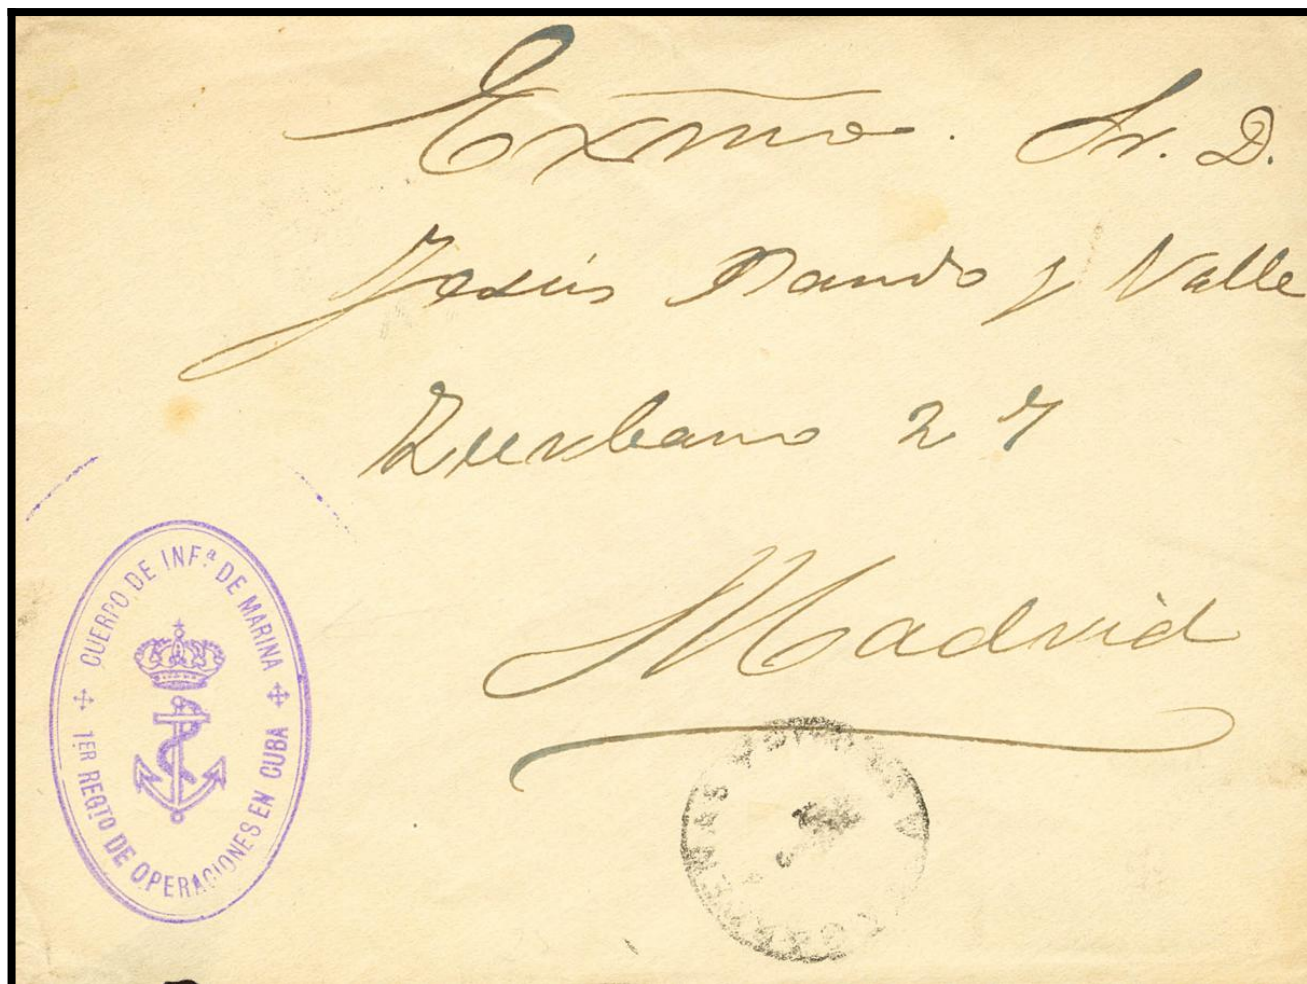 Exmo. Sr. D.
Jesús Pando y Valle
Zurbano 27
Madrid
CUERPO DE INFª DE MARINA
1ER REGTO DE OPERACIONES EN CUBA